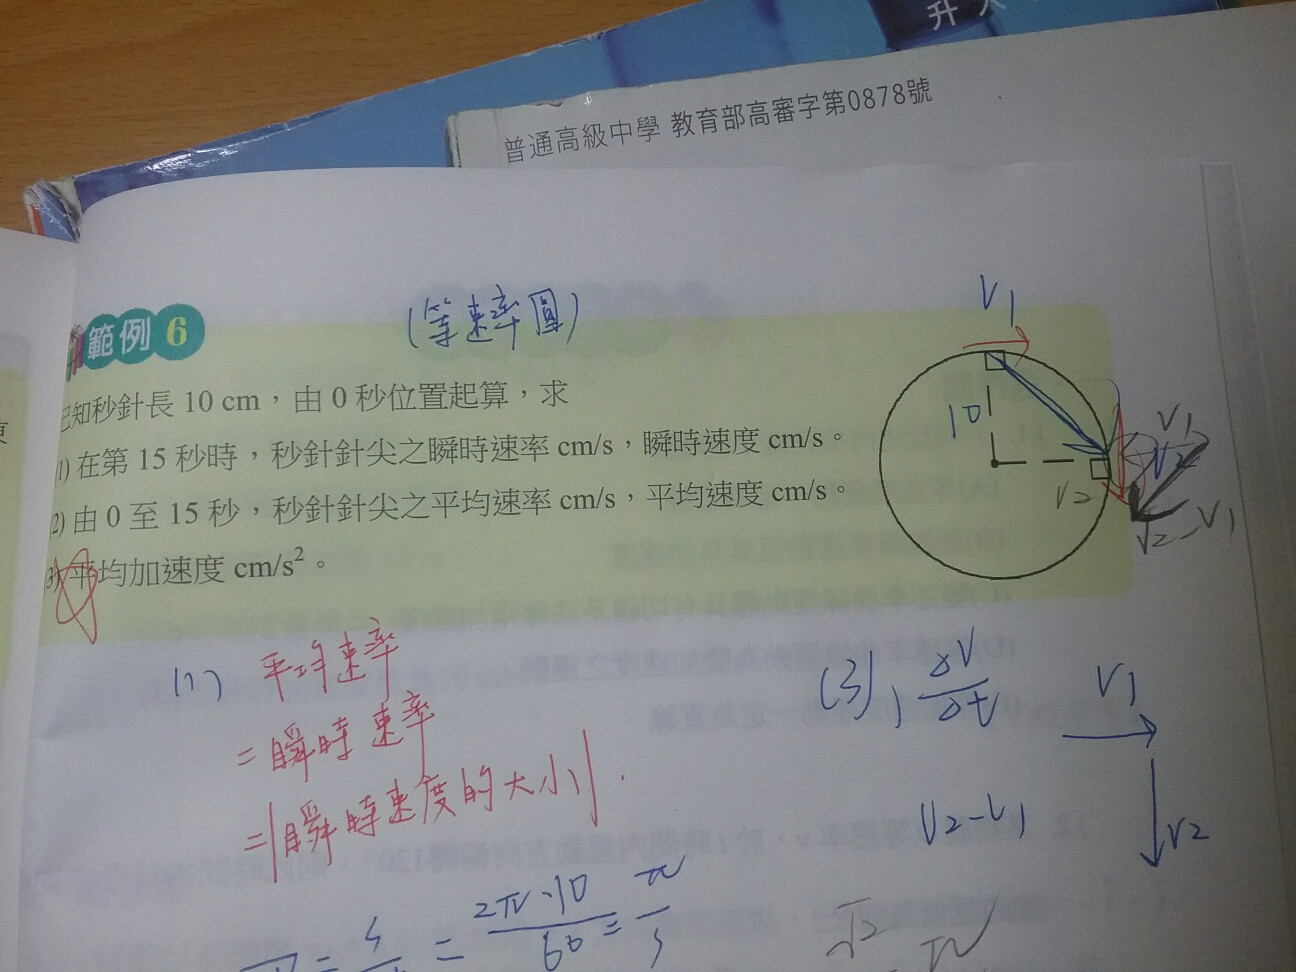 升大
普通高級中學 教育部高審字第0878號
範例 6
(等速率圓)
已知秒針長 10 cm，由 0 秒位置起算，求
(1) 在第 15 秒時，秒針針尖之瞬時速率 cm/s，瞬時速度 cm/s。
(2) 由 0 至 15 秒，秒針針尖之平均速率 cm/s，平均速度 cm/s。
(3) 平均加速度 cm/s²。
V1
10
V2
V1
V2
V2-V1
(1) 平均速率
=瞬時速率
=|瞬時速度的大小|.
= 2π·10/60 = π/3
(3), ΔV/Δt
V1
V2-V1
V2
√2 π